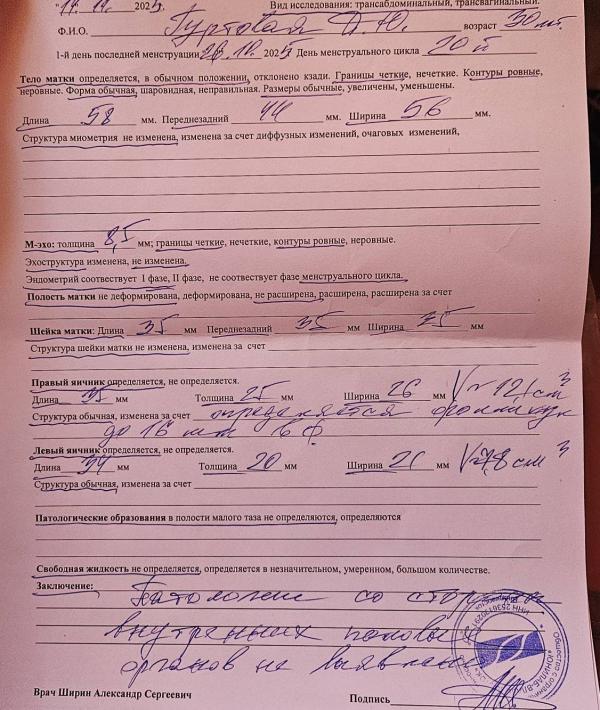 "17. 11. 2025. Вид исследования: трансабдоминальный, трансвагинальный.
Ф.И.О. Гуртовая Д.Ю. возраст 30 лет.
1-й день последней менструации 28.10.2025 День менструального цикла 20 й
Тело матки определяется, в обычном положении, отклонено кзади. Границы четкие, нечеткие. Контуры ровные,
неровные. Форма обычная, шаровидная, неправильная. Размеры обычные, увеличены, уменьшены.
Длина 58 мм. Переднезадний 44 мм. Ширина 56 мм.
Структура миометрия не изменена, изменена за счет диффузных изменений, очаговых изменений,
М-эхо: толщина 8,5 мм; границы четкие, нечеткие, контуры ровные, неровные.
Эхоструктура изменена, не изменена.
Эндометрий соотвествует I фазе, II фазе, не соотвествует фазе менструального цикла.
Полость матки не деформирована, деформирована, не расширена, расширена, расширена за счет
Шейка матки: Длина 35 мм Переднезадний 35 мм Ширина 35 мм
Структура шейки матки не изменена, изменена за счет
Правый яичник определяется, не определяется.
Длина 35 мм Толщина 25 мм Ширина 26 мм V≈12,1 см³
Структура обычная, изменена за счет определяется
до 16 мм в ф
Левый яичник определяется, не определяется.
Длина 34 мм Толщина 20 мм Ширина 21 мм V≈7,8 см³
Структура обычная, изменена за счет
Патологические образования в полости малого таза не определяются, определяются
Свободная жидкость не определяется, определяется в незначительном, умеренном, большом количестве.
Заключение: Патологии со стороны
внутренних половых
органов не выявлено
Врач Ширин Александр Сергеевич Подпись